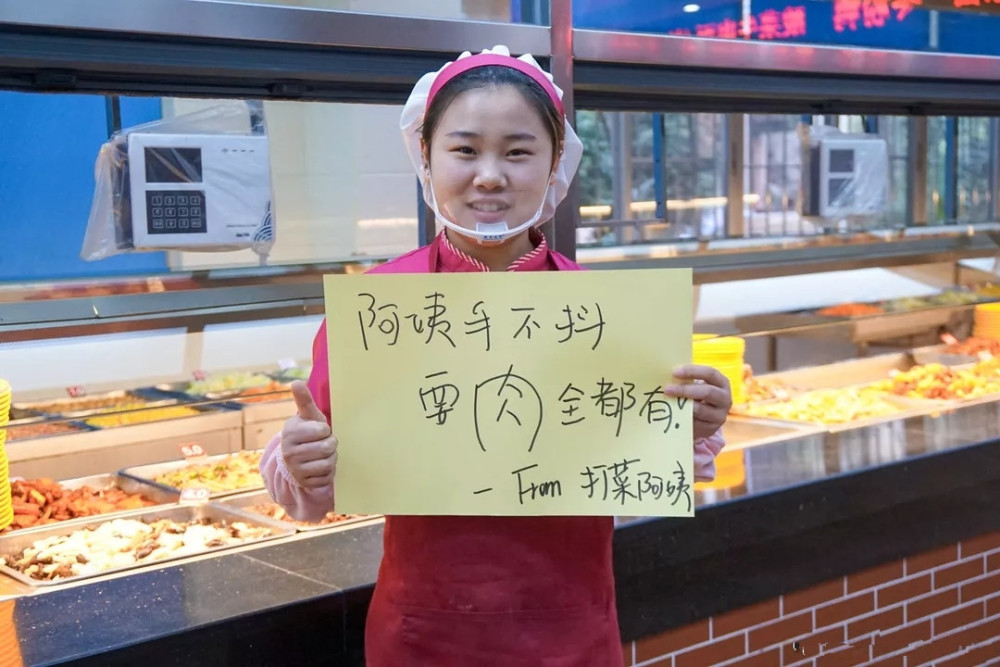 阿姨手不抖
要肉全都有!
- From 打菜阿姨
5.0